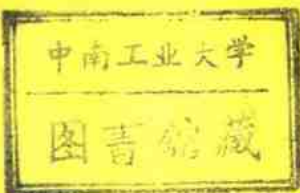 中南工业大学
图书馆藏